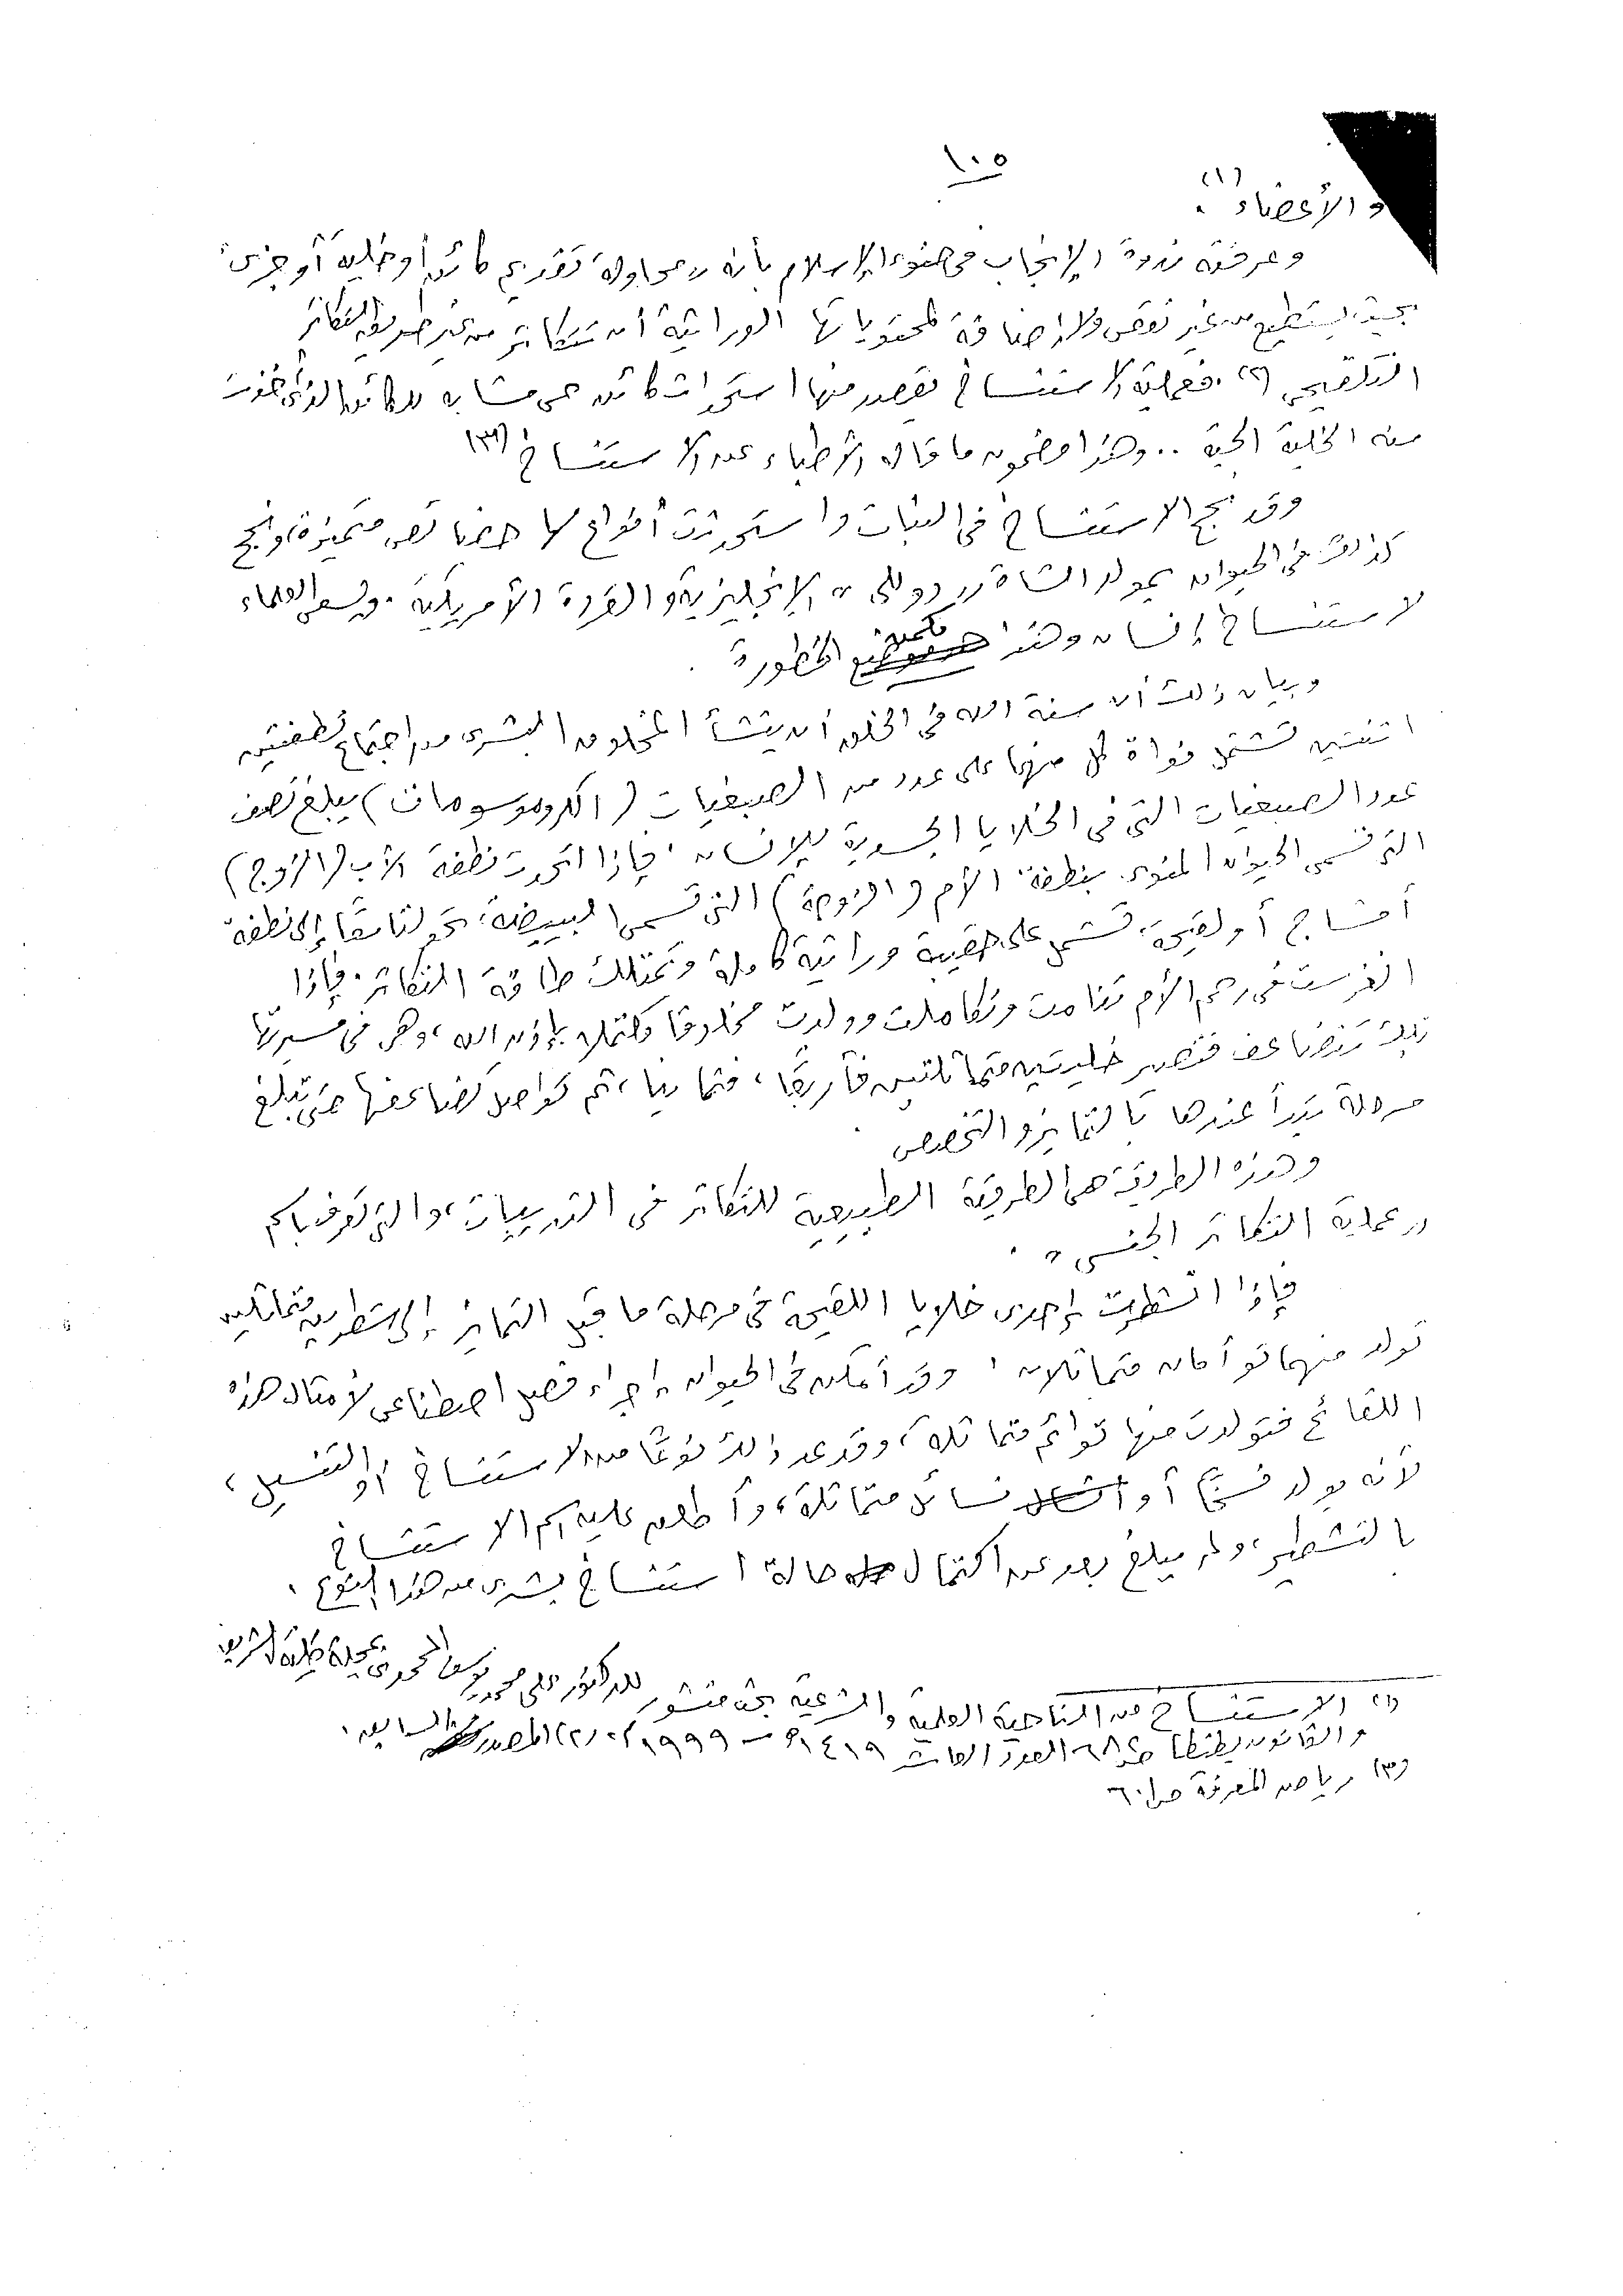 ١٠٥
والأعضاء (١).
وعرفته ندوة الإنجاب في ضوء الإسلام بأنه « محاولة تقديم كائن أو خلية أو جزىء
بحيث يستطيع من غير نقص ولا إضافة لمحتوياتها الوراثية أن تتكاثر من غير طريق التكاثر
التلقيحي (٢). فعملية الاستنساخ يقصد منها استحداث كائن حى مشابه للكائن الذى أخذت
منه الخلية الحية .. وهذا مضمون ما قاله الأطباء عن الاستنساخ (٣)
وقد نجح الاستنساخ في النبات واستحدثت أنواع لها خصائص متميزة، ونجح
كذلك في الحيوان بمولد الشاة « دوللى » الإنجليزية والقردة الأمريكية. ويسعى العلماء
لاستنساخ إنسان وهنا مكمن الخطورة.
وبيان ذلك أن سنة الله في الخلق أن ينشأ المخلوق البشرى من اجتماع نطفتين
اثنتين تشتمل نواة كل منهما على عدد من الصبغيات (الكروموسومات) يبلغ نصف
عدد الصبغيات التي في الخلايا الجسدية للإنسان. فإذا اتحدت نطفة الأب (الزوج)
التي تسمى الحيوان المنوى بنطفة الأم (الزوجة) التي تسمى البييضة، تحولتا معًا إلى نطفة
أمشاج أو لقيحة، تشتمل على حقيبة وراثية كاملة وتمتلك طاقة التكاثر. فإذا
انغرست في رحم الأم تنامت وتكاملت وولدت مخلوقا مكتملا بإذن الله، وهى في مسيرتها
تلك تتضاعف فتصير خليتين متماثلتين فأربعًا، فثمانيا، ثم تواصل تضاعفها حتى تبلغ
مرحلة تبدأ عندها بالتمايز والتخصص.
وهذه الطريقة هى الطريقة الطبيعية للتكاثر في الثدييات، والتي تعرف باسم
« عملية التكاثر الجنسى ».
فإذا انشطرت إحدى خلايا اللقيحة في مرحلة ما قبل التمايز إلى شطرين متماثلين
تولد منهما توأمان متماثلان. وقد أمكن في الحيوان إجراء فصل اصطناعى لأمثال هذه
اللقائح فتولدت منها توائم متماثلة، وقد عد ذلك نوعًا من الاستنساخ أو التنسيل،
لأنه يولد نسخًا أو نسائل متماثلة، وأطلق عليه اسم الاستنساخ
بالتشطير، ولم يبلغ بعد عن اكتمال حالة استنساخ بشرى من هذا النوع.
(١) الاستنساخ من الناحية العلمية والشرعية بحث منشور للدكتور على محمد يوسف المحمدى بمجلة كلية الشريعة
والقانون بطنطا ص ٦٨ العدد العاشر ١٤١٩هـ - ١٩٩٩م. (٢) المصدر السابق.
(٣) رياض المعرفة ص ٦٠